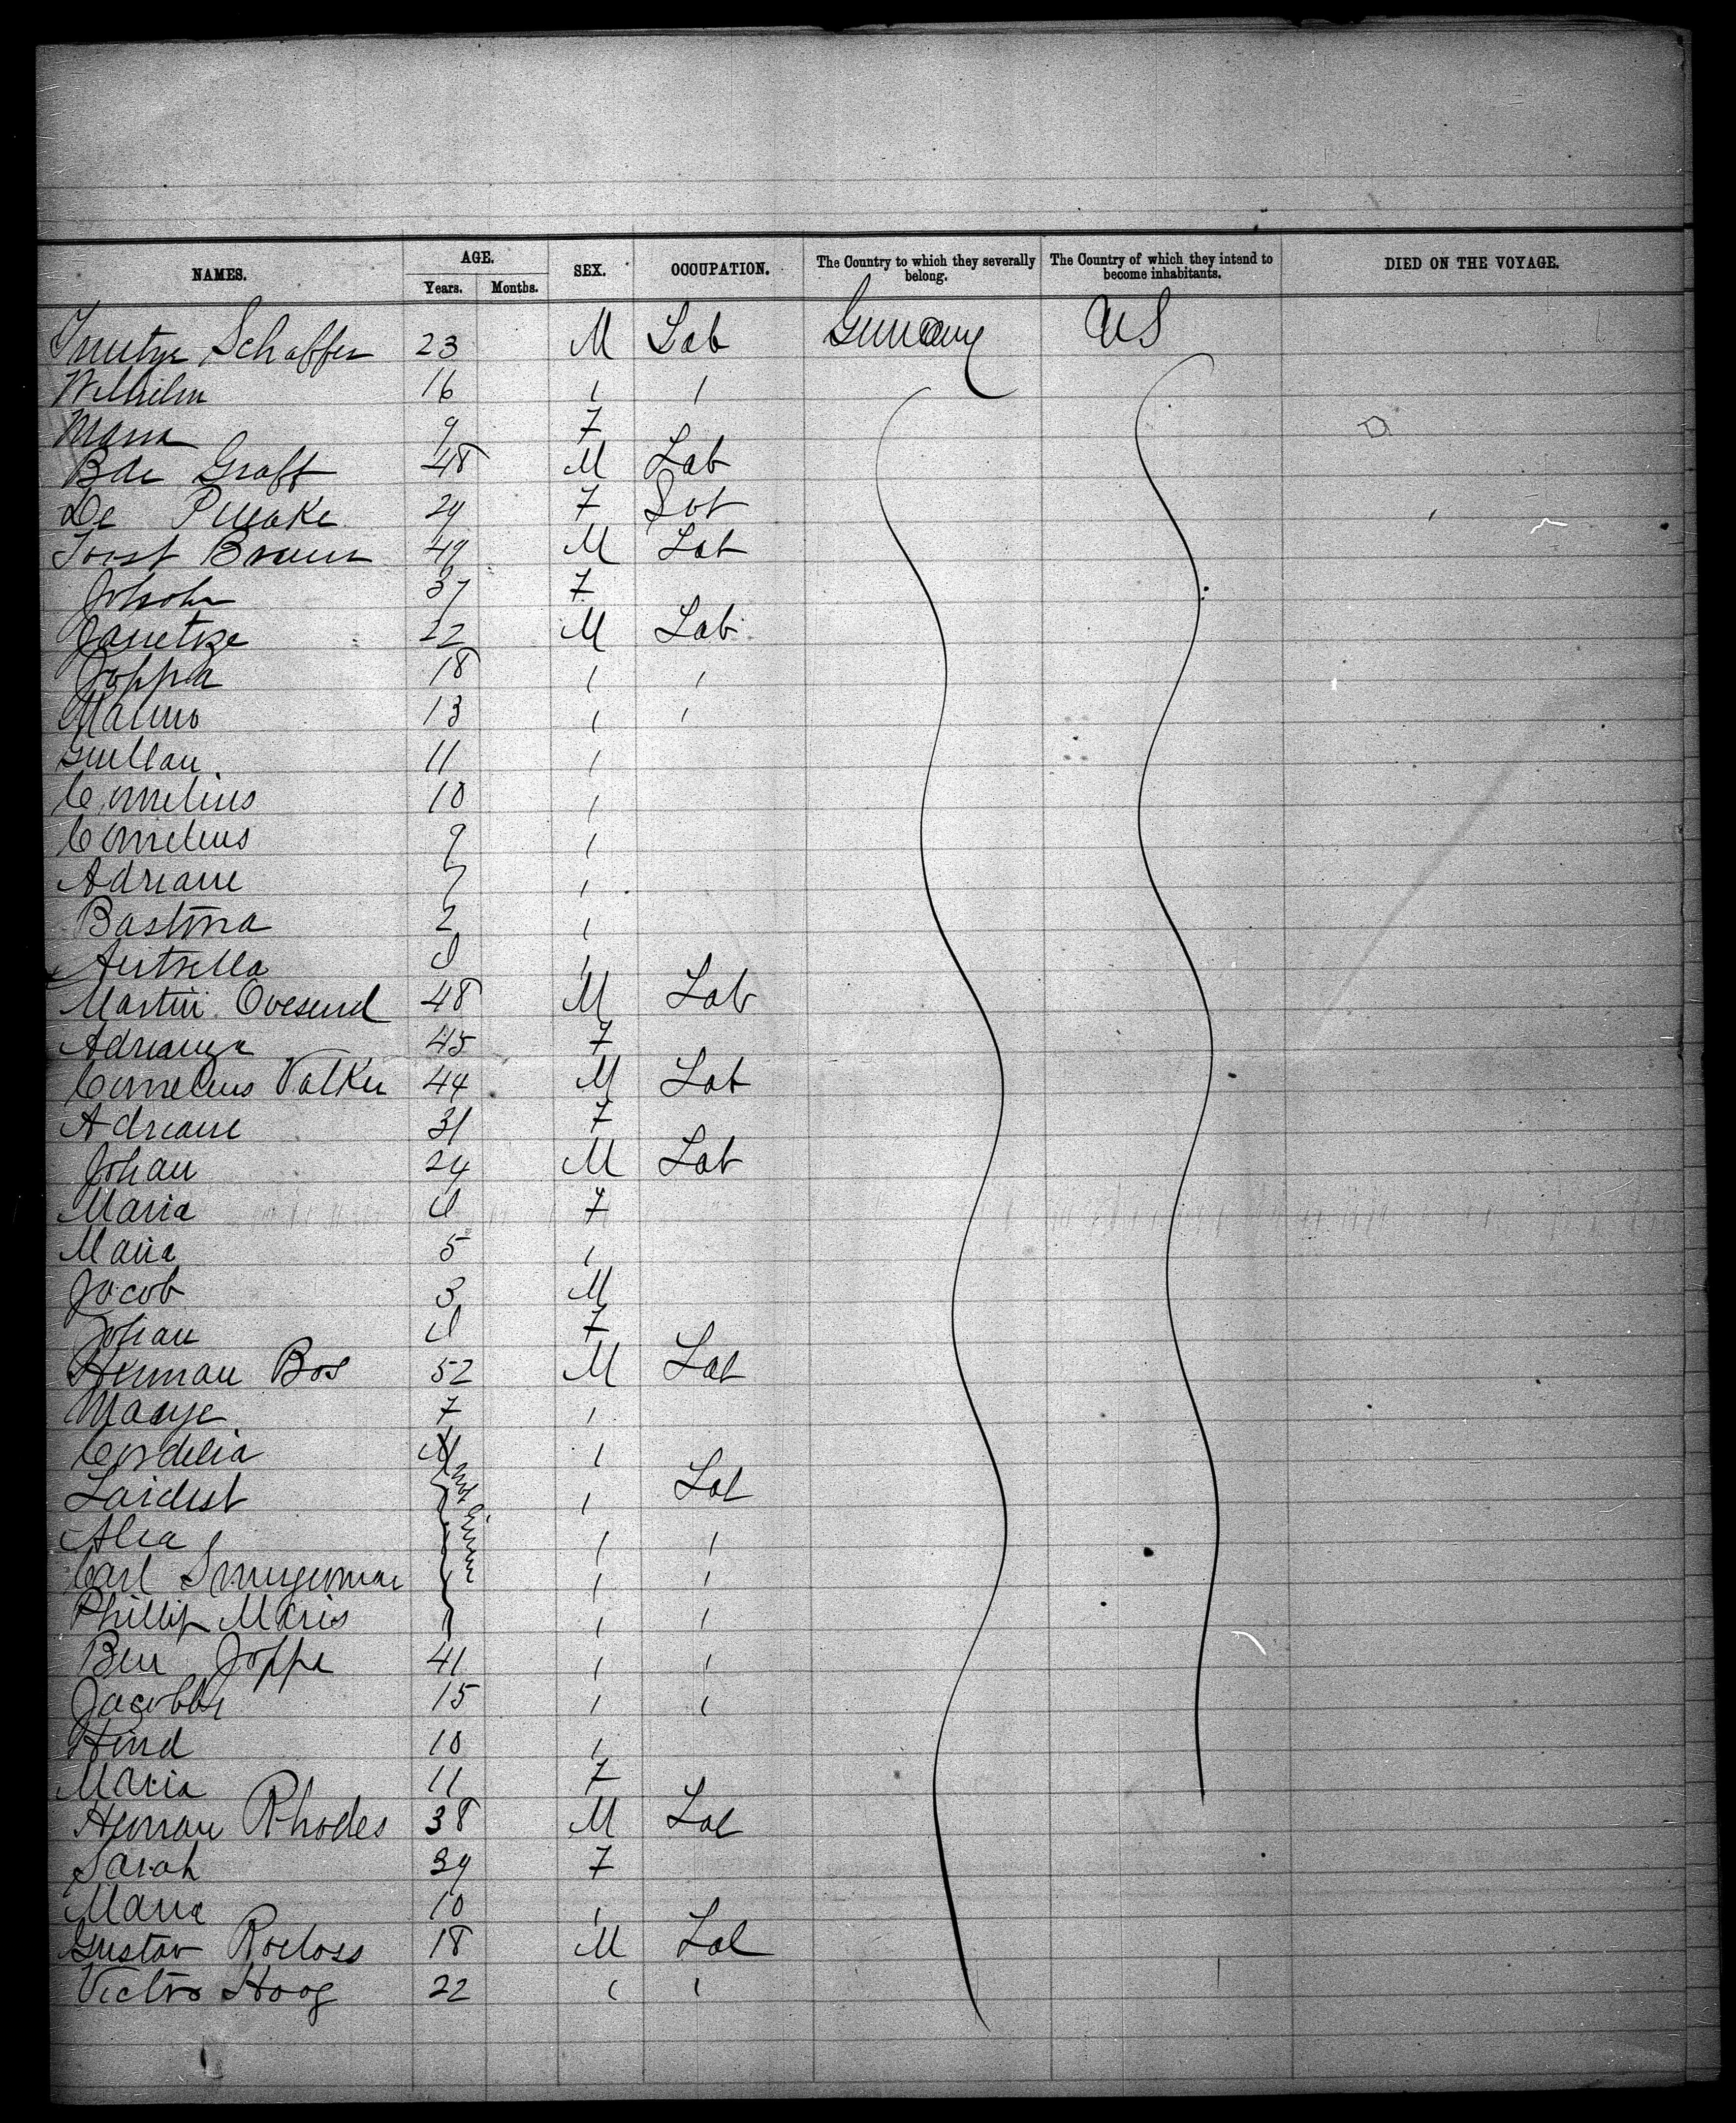 NAMES. AGE. SEX. OCCUPATION. The Country to which they severally belong. The Country of which they intend to become inhabitants. DIED ON THE VOYAGE.
Years. Months.
Schaffer 23 M Lab Germany US
Wilhelm 16 / /
Maria 9 F
Bde Graff 48 M Lab
De 29 F
Joist Braun 49 M Lab
37 F
Janetze 22 M Lab
Joppa 18 / /
13 / /
11 /
Cornelius 10 /
Cornelius 9 /
Adriane 7 /
Bastina 2 /
/
Martin 48 M Lab
Adriana 45 F
Cornelius Valker 44 M Lab
Adriane 31 F
Johan 24 M Lab
Maria F
Maria 5 /
Jacob 3 M
Johan F
Herman Bos 52 M Lab
Maaye 7 /
Cordelia /
/ Lab
Alea / /
Carl / /
Phillip Maris / /
Ben Joppe 41 / /
15 / /
Hind 10 /
Maria 11 F
Herman Rhodes 38 M Lab
Sarah 39 F
Maria 10 /
Gustav Roeloss 18 M Lab
Victor Hoog 22 / /